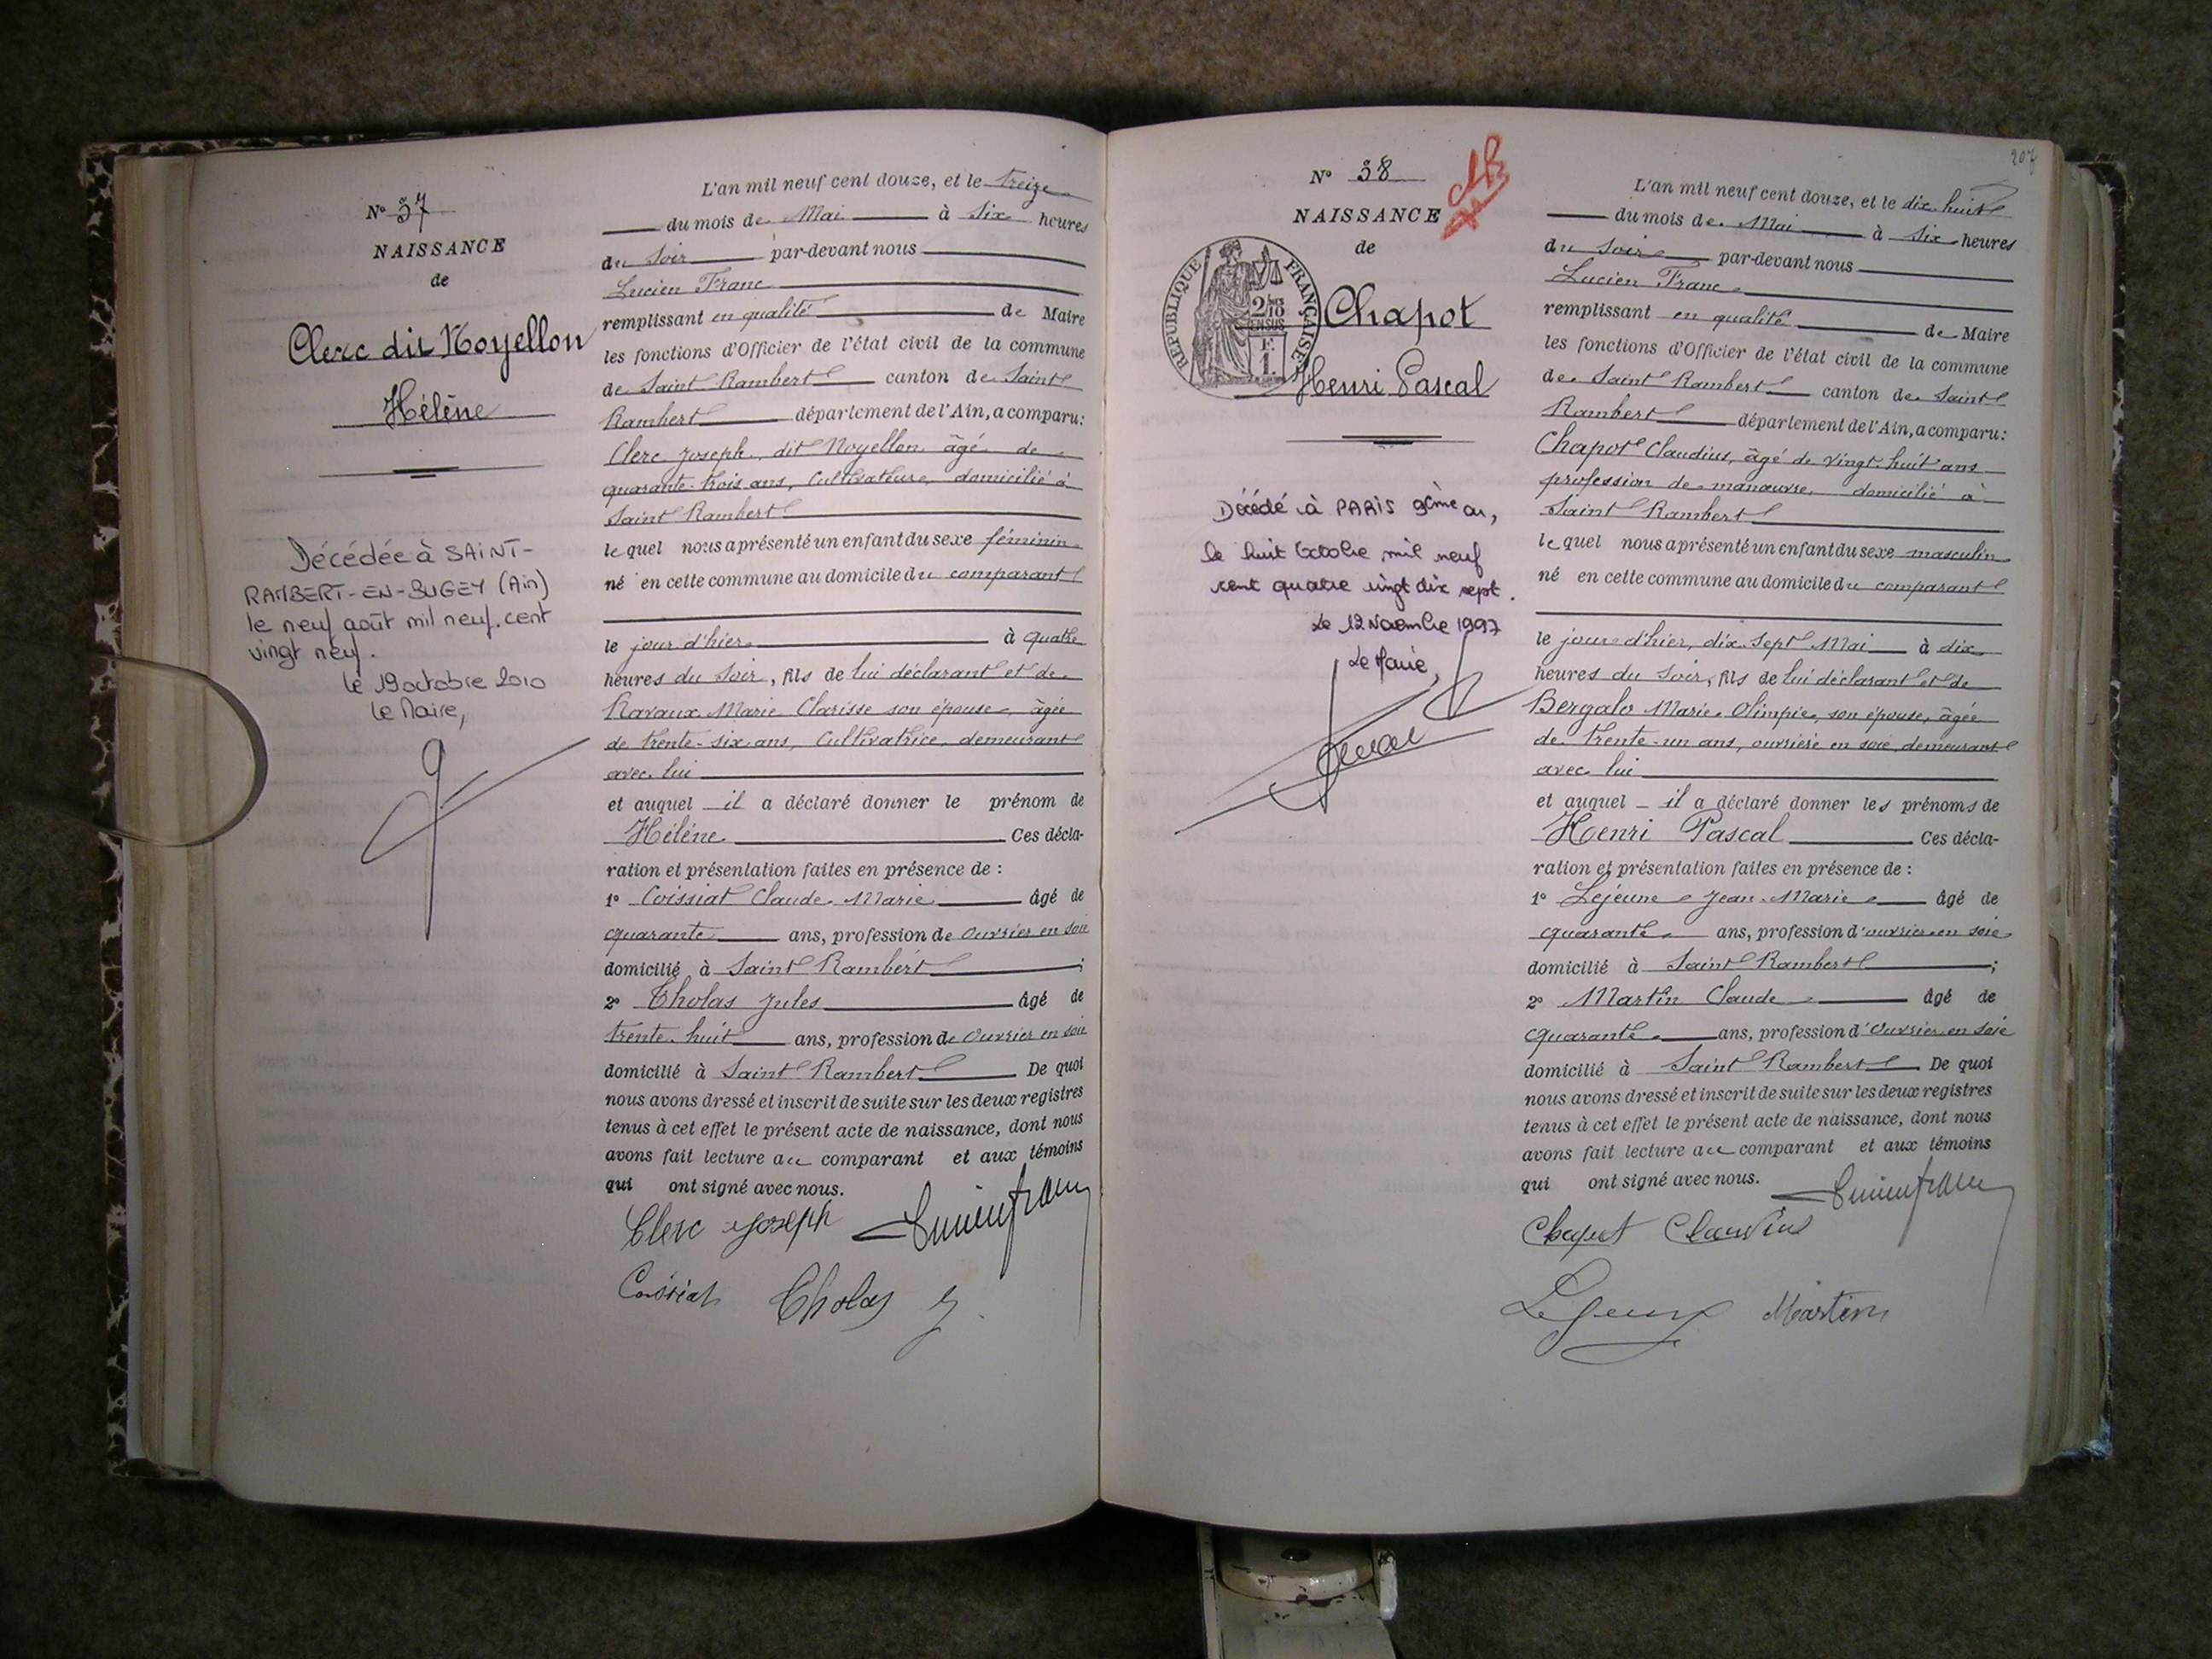 N° 37
NAISSANCE
de
Clerc dit Noyellon
Hélène
Décédée à SAINT-
RAMBERT-EN-BUGEY (Ain)
le neuf août mil neuf cent
vingt neuf.
le 19 octobre 2010
le Maire,
L'an mil neuf cent douze, et le treize
du mois de Mai à six heures
du soir par-devant nous
Lucien Franc
remplissant en qualité de Maire
les fonctions d'Officier de l'état civil de la commune
de Saint Rambert canton de Saint
Rambert département de l'Ain, a comparu:
Clerc Joseph, dit Noyellon âgé de
quarante-trois ans, Cultivateur, domicilié à
Saint Rambert
lequel nous a présenté un enfant du sexe féminin
né en cette commune au domicile du comparant
le jour d'hier à quatre
heures du soir, fils de lui déclarant et de
Ravaux Marie Clarisse son épouse, âgée
de trente-six ans, Cultivatrice, demeurant
avec lui
et auquel il a déclaré donner le prénom de
Hélène Ces décla-
ration et présentation faites en présence de :
1° Coissiat Claude Marie âgé de
quarante ans, profession de ouvrier en soie
domicilié à Saint Rambert ;
2° Tholas Jules âgé de
trente huit ans, profession de ouvrier en soie
domicilié à Saint Rambert De quoi
nous avons dressé et inscrit de suite sur les deux registres
tenus à cet effet le présent acte de naissance, dont nous
avons fait lecture au comparant et aux témoins
qui ont signé avec nous.
Clerc Joseph Lucien franc
Coissiat Tholas J.
207
N° 38
NAISSANCE
de
RÉPUBLIQUE FRANÇAISE
2/10 EN SUS
F.
1.
Chapot
Henri Pascal
Décédé à PARIS 9ème arr,
le huit Octobre mil neuf
cent quatre vingt dix sept.
Le 12 Novembre 1997
Le Maire,
L'an mil neuf cent douze, et le dix huit
du mois de Mai à six heures
du soir par-devant nous
Lucien Franc
remplissant en qualité de Maire
les fonctions d'Officier de l'état civil de la commune
de Saint Rambert canton de Saint
Rambert département de l'Ain, a comparu:
Chapot Claudius, âgé de vingt-huit ans
profession de manœuvre, domicilié à
Saint Rambert
lequel nous a présenté un enfant du sexe masculin
né en cette commune au domicile du comparant
le jour d'hier, dix-sept Mai à dix
heures du soir, fils de lui déclarant et de
Bergalo Marie Olimpie, son épouse, âgée
de trente-un ans, ouvrière en soie, demeurant
avec lui
et auquel il a déclaré donner les prénoms de
Henri Pascal Ces décla-
ration et présentation faites en présence de :
1° Lejeune Jean Marie âgé de
quarante ans, profession d'ouvrier en soie
domicilié à Saint Rambert ;
2° Martin Claude âgé de
quarante ans, profession d'ouvrier en soie
domicilié à Saint Rambert De quoi
nous avons dressé et inscrit de suite sur les deux registres
tenus à cet effet le présent acte de naissance, dont nous
avons fait lecture au comparant et aux témoins
qui ont signé avec nous. Lucien franc
Chapot Claudius
Lejeune Martin